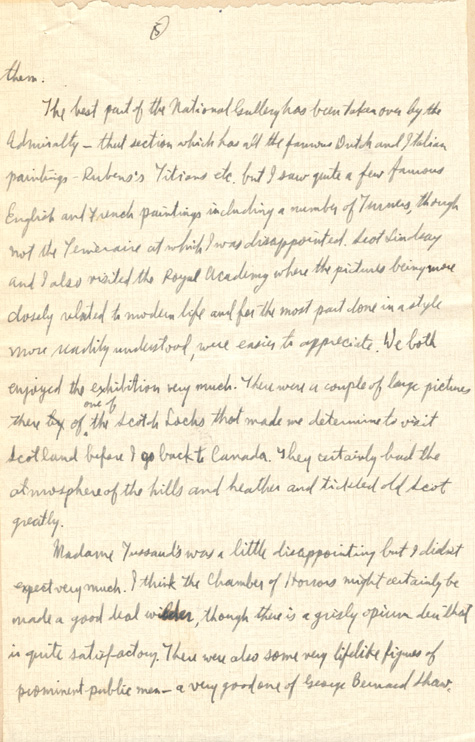 5
them.
The best part of the National Gallery has been taken over by the
Admiralty – that section which has all the famous Dutch and Italian
paintings – Rubens's Titians etc. but I saw quite a few famous
English and French paintings including a number of Turners, though
not the Temeraire at which I was disappointed. Scot Lindsay
and I also visited the Royal Academy where the pictures being more
closely related to modern life and for the most part done in a style
more readily understood, were easier to appreciate. We both
enjoyed the exhibition very much. There were a couple of large pictures
one of
there of the Scotch Lochs that made me determine to visit
Scotland before I go back to Canada. They certainly had the
atmosphere of the hills and heather and tickled old Scot
greatly.
Madame Tussaud's was a little disappointing but I didn't
expect very much. I think the Chamber of Horrors might certainly be
made a good deal wilder, though there is a grisly opium den that
is quite satisfactory. There were also some very lifelike figures of
prominent public men – a very good one of George Bernard Shaw.